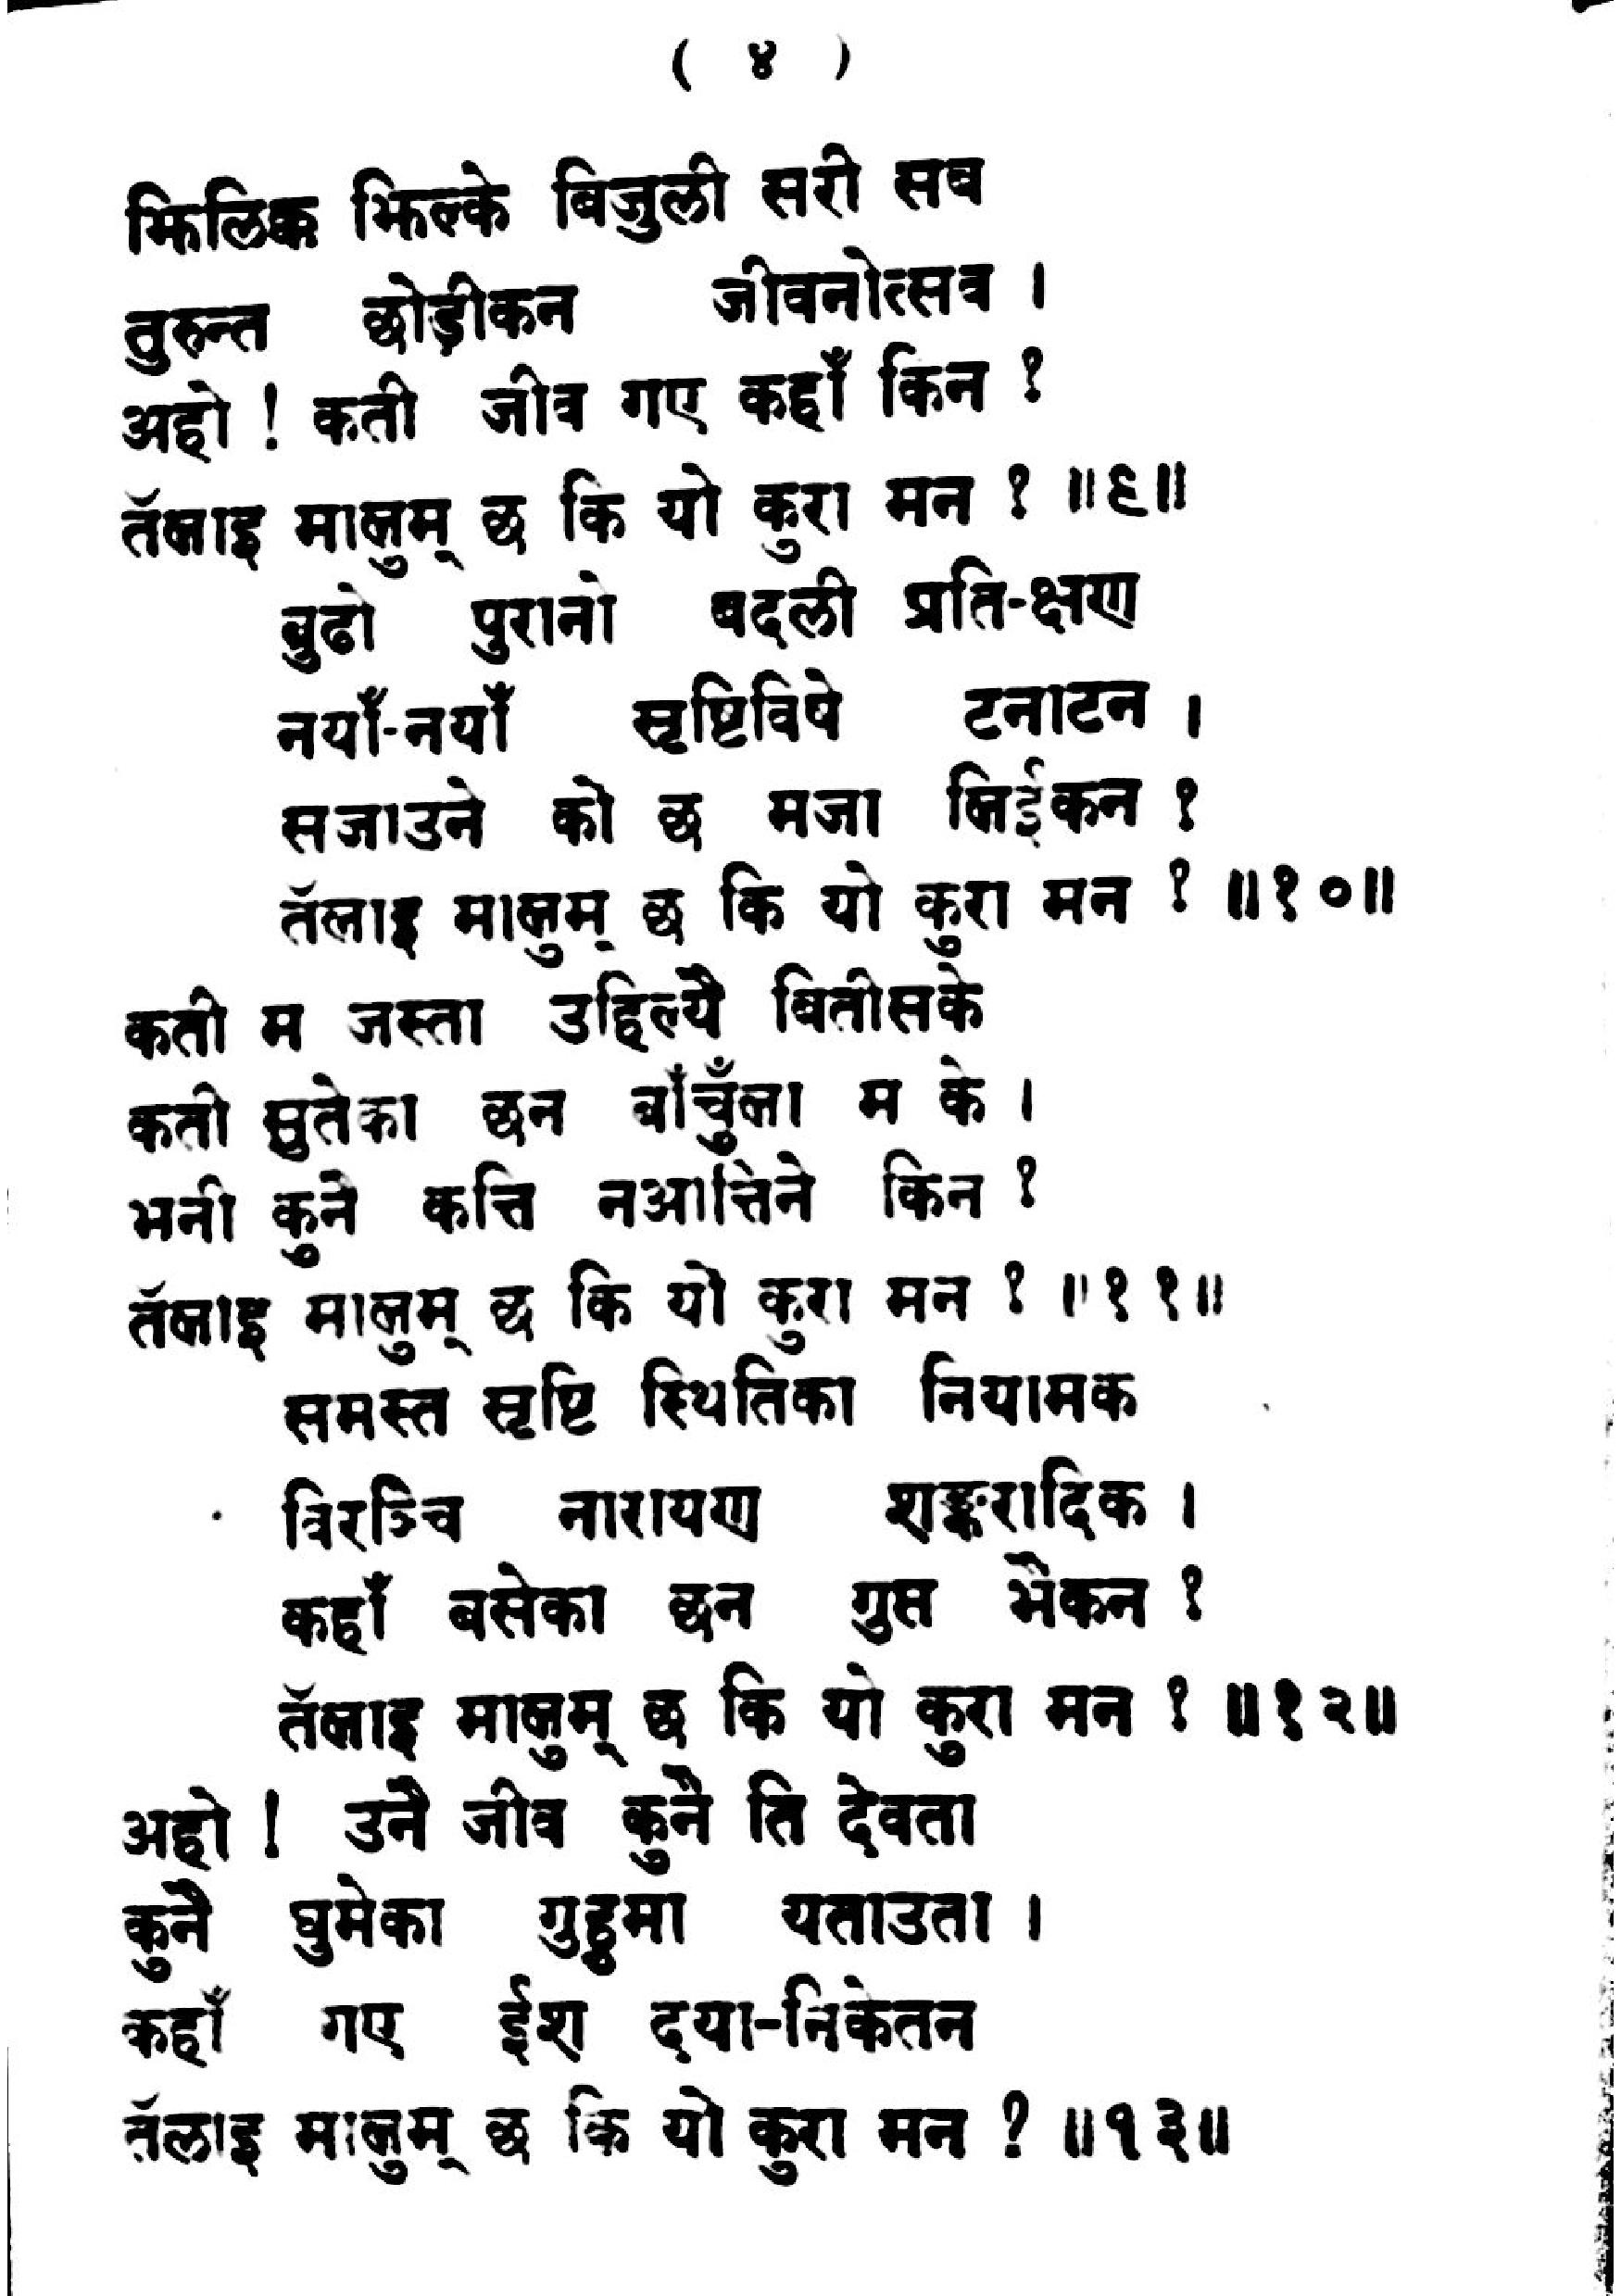 ( ४ )
झिलिक्क झिल्के बिजुली सरी सब
तुरुन्त छोड़ीकन जीवनोत्सव ।
अहो ! कती जीव गए कहाँ किन ?
तँलाइ मालुम् छ कि यो कुरा मन ? ॥९॥
बुढो पुरानो बदली प्रति-क्षण
नयाँ-नयाँ सृष्टिविषे टनाटन ।
सजाउने को छ मजा लिईकन ?
तँलाइ मालुम् छ कि यो कुरा मन ? ॥१०॥
कती म जस्ता उहिल्यै बितीसके
कती सुतेका छन बाँचुँला म के ।
भनी कुनै कत्ति नआत्तिने किन ?
तँलाइ मालुम् छ कि यो कुरा मन ? ॥११॥
समस्त सृष्टि स्थितिका नियामक
विरञ्चि नारायण शङ्करादिक ।
कहाँ बसेका छन गुप्त भैकन ?
तँलाइ मालुम् छ कि यो कुरा मन ? ॥१२॥
अहो ! उनै जीव कुनै ति देवता
कुनै घुमेका गुहुमा यताउता ।
कहाँ गए ईश दया-निकेतन
तँलाइ मालुम् छ कि यो कुरा मन ? ॥१३॥